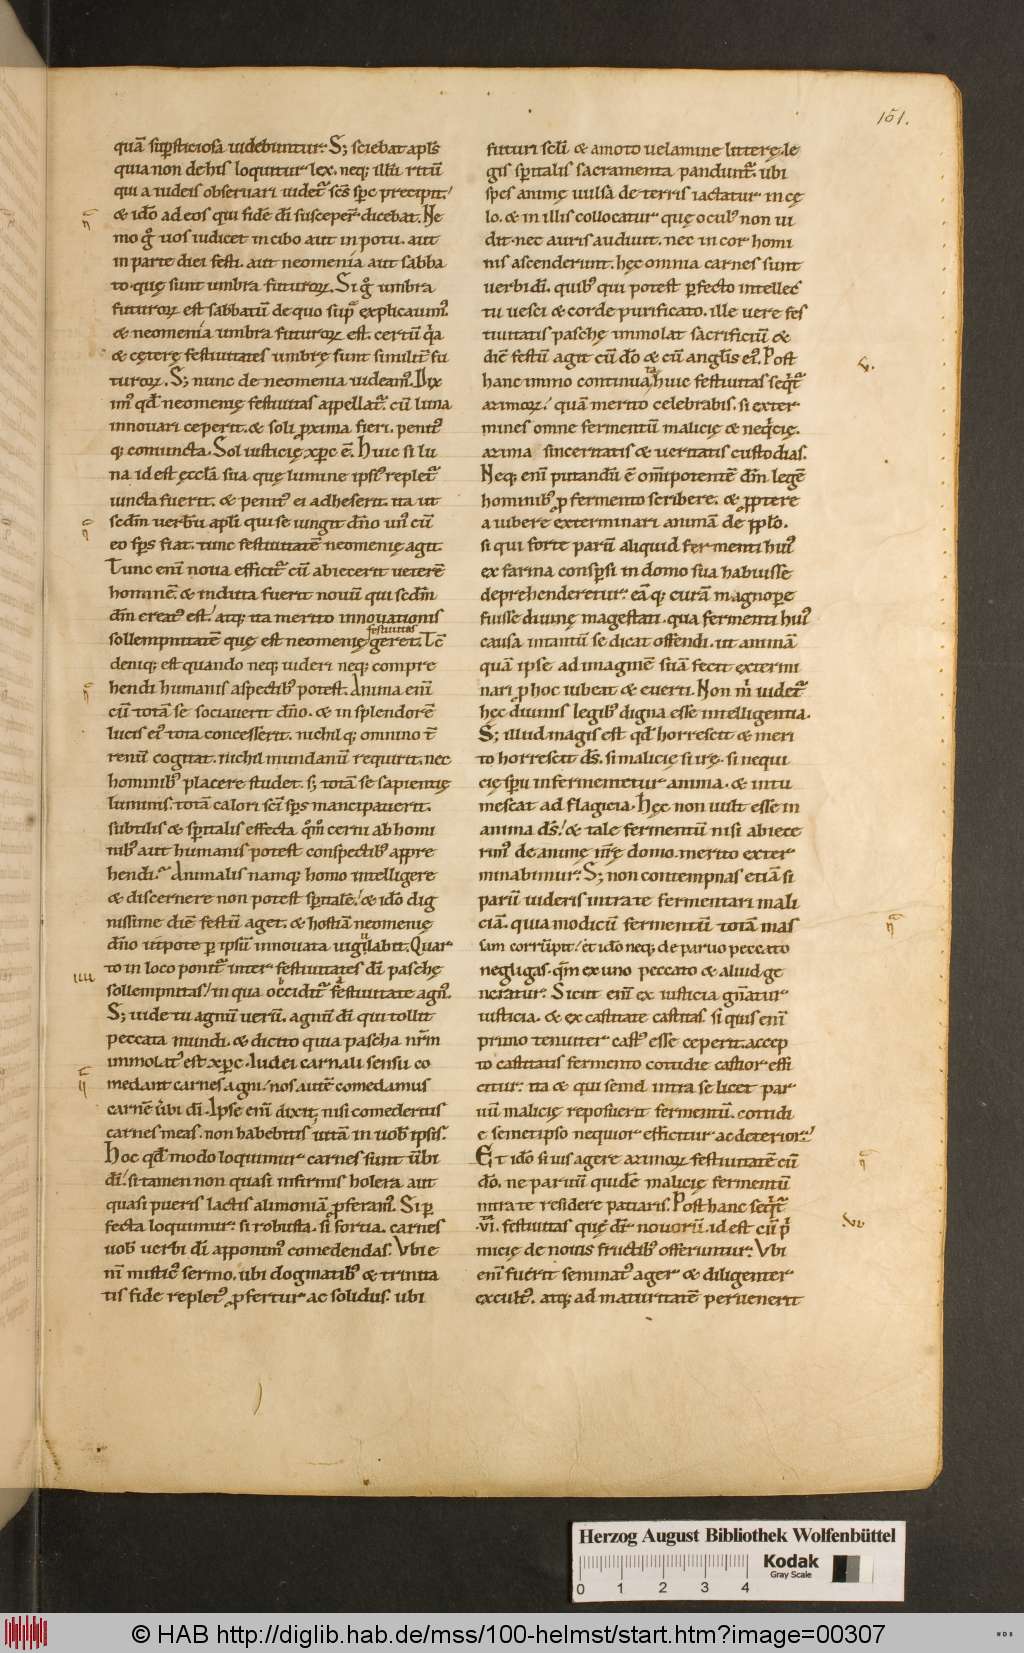 151.
quā suꝑsticiosa uidebuntur. S; sciebat apl's
quia non de his loquitur lex. neq; illū ritū
qui a iudeis obseruari uidet̃ sc̄s spc̄ precipit.
& idō ad eos qui fidē dī susceper̄ dicebat. Ne
mo g̊ uos iudicet in cibo aut in potu. aut
in parte diei festi. aut neomenia aut sabba
to. quę sunt umbra futuroꝝ. Si g̊ umbra
futuroꝝ est sabbatū de quo sup̃ explicauim᷒.
& neomenia umbra futuroꝝ est. certū q̓a
& cęterę festiuitates umbrę sunt similit̄ fu
turoꝝ. S; nunc de neomenia uideam᷒. Dix
im᷒ qd̄ neomenię festiuitas appellat̃. cū luna
innouari ceperit. & soli ꝓxima fieri. penit᷒
q; coniuncta. Sol iusticię xp̄c ē. Huic si lu
na id est ęccl̄a sua quę lumine ipsi᷒ replet̃
iuncta fuerit. & penit᷒ ei adheserit. ita ut
scd̄m uerbū apl̄i qui se iungit dn̄o un᷒ cū
eo sp̄s fiat. tunc festiuitatē neomenię agit.
Tunc enī noua efficit̃ cū abiecerit ueterē
hominē. & induta fuerit nouū qui scd̄m
dm̄ creat᷒ est. atq; ita merito innouationis
sollempnitatē quę est neomenię festiuitas geret. Tc̄
deniq; est quando neq; uideri neq; compre
hendi humanis aspectib᷒ potest. Anima enī
cū totā se sociauerit dn̄o. & in splendorē
lucis ei᷒ tota concesserit. nichil q; omnino t̄
renū cogitat. nichil mundanū requirit. nec
hominib᷒ placere studet. s; totā se sapientię
luminis. totā calori sc̄i sp̄s mancipauerit.
subtilis & sp̄italis effecta. q̊m̊ cerni ab homi
nib᷒ aut humanis potest conspectib᷒ appre
hendi. Animalis namq; homo intelligere
& discernere non potest sp̄italē. & idō dig
nissime diē festū aget. & hostiā neomenię
dn̄o utpote ꝑ ipsū innouata uigilabit. Quar
to in loco ponit̃ inter festiuitates dī paschę
sollempnitas. in qua occidit̃ festiuitate agn᷒.
S; uide tu agnū uerū. agnū dī qui tollit
peccata mundi. & dicito quia pascha nr̄m
immolat᷒ est xp̄c. Iudei carnali sensu co
medant carnes agni. nos autē comedamus
carnē ūbi dī. Ipse enī dixit. nisi comederitis
carnes meas. non habebitis uitā in uob̄ ipsis.
Hoc qd̄ modo loquimur carnes sunt ūbi
dī. si tamen non quasi infirmis holera aut
quasi pueris lactis alimoniā ꝓferam᷒. Si ꝑ
fecta loquimur. si robusta. si fortia. carnes
uob᷒ uerbi dī apponim᷒ comedendas. Vbi e
nī mistic᷒ sermo. ubi dogmatib᷒ & trinita
tis fide replet᷒ ꝓfertur ac solidus. ubi
futuri scl̄i & amoto uelamine litterę. le
gis sp̄italis sacramenta pandunt̃. ubi
spes animę uulsa de terris iactatur in cę
lo. & in illis collocatur quę ocul᷒ non ui
dit. nec auris audiuit. nec in cor homi
nis ascenderunt. hęc omnia carnes sunt
uerbi dī. quib᷒ qui potest ꝑfecto intellec
tu uesci & corde purificato. ille uere fes
tiuitatis paschę immolat sacrificiū &
diē festū agit cū dō & cū angl̄is ei᷒. Post
hanc immo continuata huic festiuitas seq̓t̃
azimoꝝ. quā merito celebrabis. si exter
mines omne fermentū malicię & neq̓cię.
azima sinceritatis & ueritatis custodias.
Neq; enī putandū ē om̄ipotentē dm̄ legē
hominib᷒ ꝓ fermento scribere. & ꝓptere
a iubere exterminari animā de ppl̄o.
si qui forte parū aliquid fermenti hui᷒
ex farina conspsi in domo sua habuisse
deprehenderetur. eā q; curā magnopere
fuisse diuinę magestati. qua fermenti hui᷒
causa intantū se dicat offendi. ut animā
quā ipse ad imaginē suā fecit extermi
nari ꝓ hoc iubeat & euerti. Non m̓ uidet̃
hęc diuinis legib᷒ digna esse intelligentia.
S; illud magis est qd̄ horrescit & meri
to horrescit ds̄. si malicię si irę. si nequi
cię sp̄u infermentetur anima. & intu
mescat ad flagicia. Hęc non uult esse in
anima ds̄. & tale fermentū nisi abiece
rim᷒ de animę nr̄ę domo. merito exter
minabimur. S; non contempnas etiā si
parū uideris intra te fermentari mali
ciā. quia modicū fermentū totā mas
sam corrūpit. et idō neq; de paruo peccato
negligas. qm̄ ex uno peccato & aliud ge
neratur. Sicut enī ex iusticia gn̄atur
iusticia. & ex castitate castitas. si quis enī
primo tenuiter cast᷒ esse ceperit. accep
to castitatis fermento cottidie castior effi
citur. ita & qui semel intra se licet par
uū malicię reposuerit fermentū. cottidi
e semetipso nequior efficitur ac deterior.
Et idō si uis agere azimoꝝ festiuitatē cū
dō. ne paruū quidē malicię fermentū
intra te residere patiaris. Post hanc seq̓t̃
.vi. festiuitas quę dr̄ nouorū. id est cū p̓
micię de nouis fructib᷒ offeruntur. Vbi
enī fuerit seminat᷒ ager & diligenter
excult᷒. atq; ad maturitatē peruenerit
IIII
V.
VI
Herzog August Bibliothek Wolfenbüttel
0 1 2 3 4
Kodak
Gray Scale
© HAB http://diglib.hab.de/mss/100-helmst/start.htm?image=00307